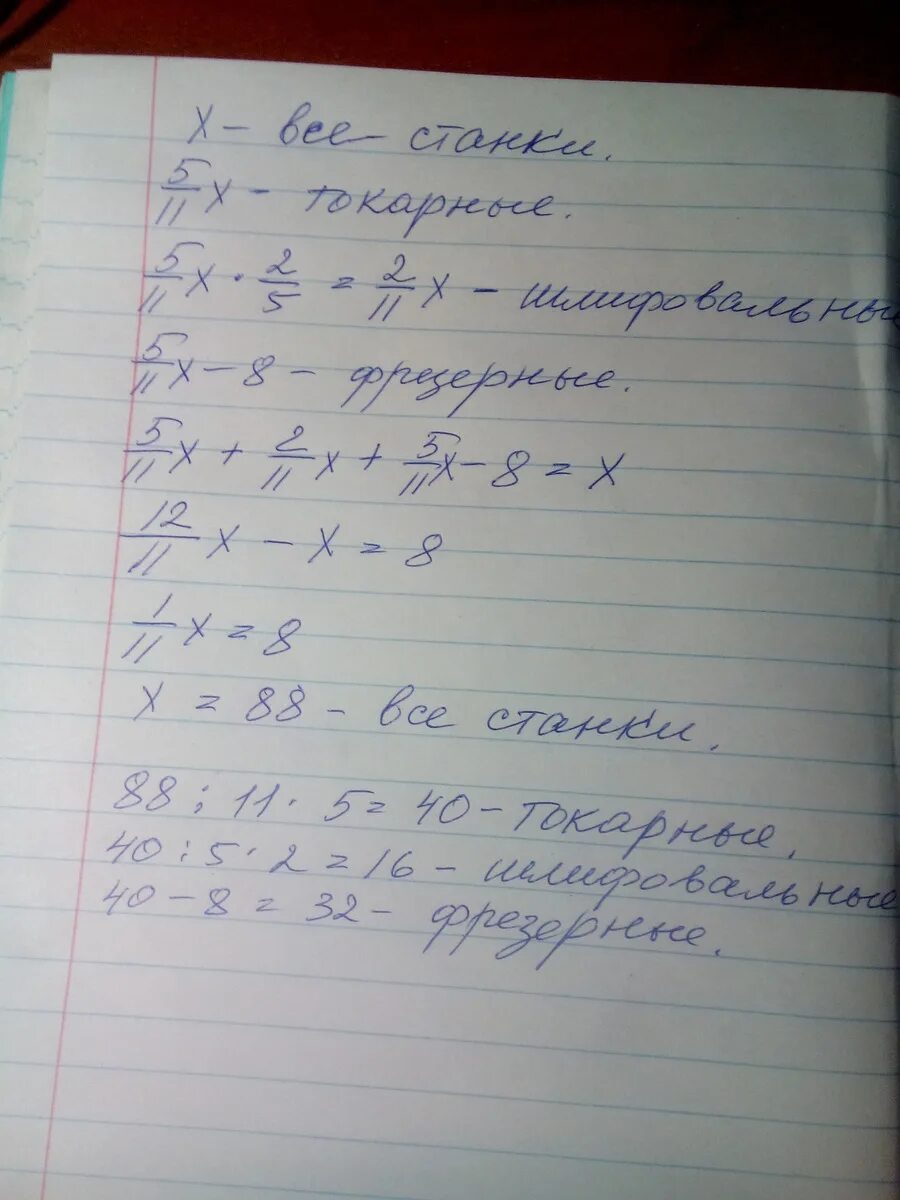 х – все – станки.
5/11 х – токарные.
5/11 х · 2/5 = 2/11 х – шлифовальные
5/11 х – 8 – фрезерные.
5/11 х + 2/11 х + 5/11 х – 8 = х
12/11 х – х = 8
1/11 х = 8
х = 88 – все станки.
88 : 11 · 5 = 40 – токарные.
40 : 5 · 2 = 16 – шлифовальные
40 – 8 = 32 – фрезерные.